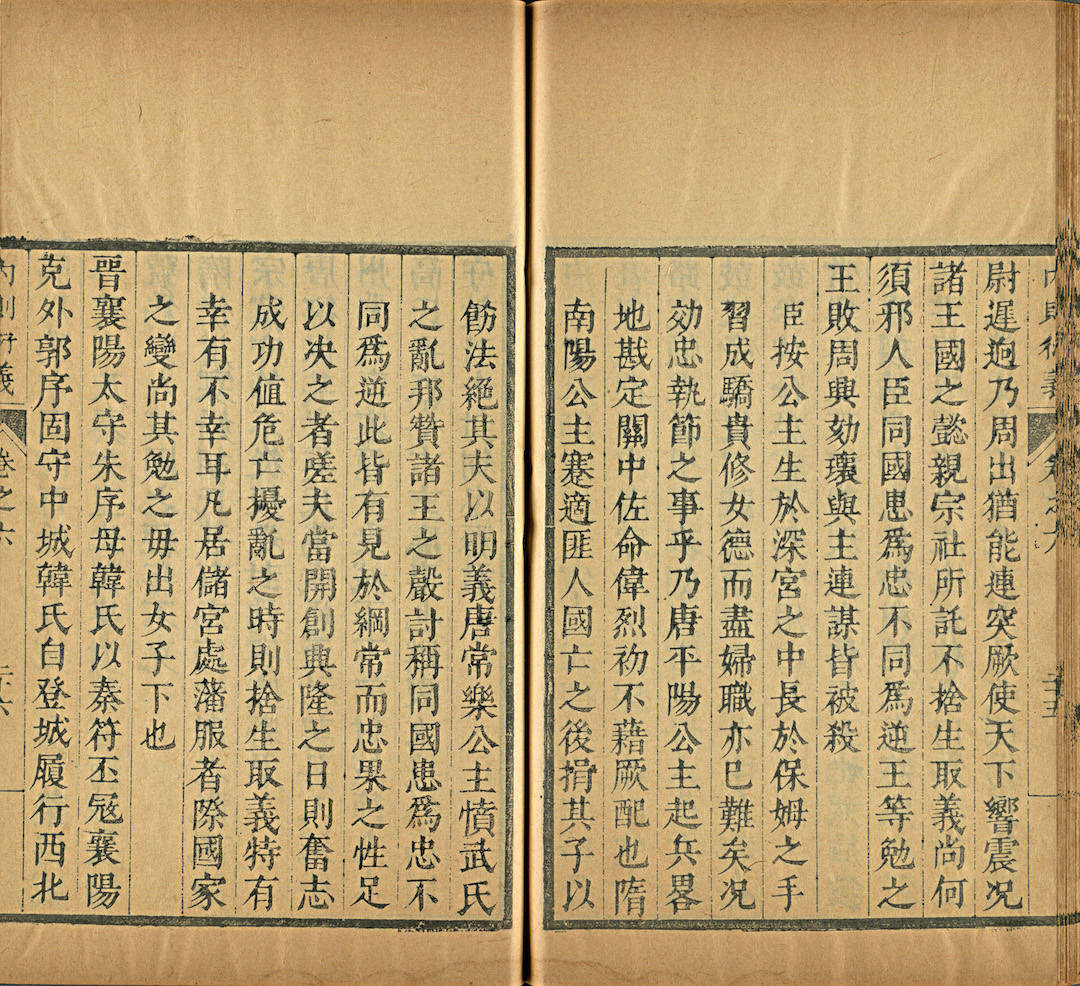 內則衍義 卷之六 二十五
尉遲迥乃周出猶能連突厥使天下響震况
諸王國之懿親宗社所託不捨生取義尚何
須邪人臣同國患爲忠不同爲逆王等勉之
王敗周興劾瓌與主連謀皆被殺
臣按公主生於深宮之中長於保姆之手
習成驕貴修女德而盡婦職亦已難矣况
効忠執節之事乎乃唐平陽公主起兵畧
地戡定關中佐命偉烈初不藉厥配也隋
南陽公主蹇適匪人國亡之後捐其子以
飭法絕其夫以明義唐常樂公主憤武氏
之亂邦贊諸王之嗀討稱同國患爲忠不
同爲逆此皆有見於綱常而忠果之性足
以决之者嗟夫當開創興隆之日則奮志
成功值危亡擾亂之時則捨生取義特有
幸有不幸耳凡居儲宮處藩服者際國家
之變尚其勉之毋出女子下也
晉襄陽太守朱序母韓氏以秦符丕冦襄陽
克外郭序固守中城韓氏自登城履行西北
內則衍義 卷之六 二十六